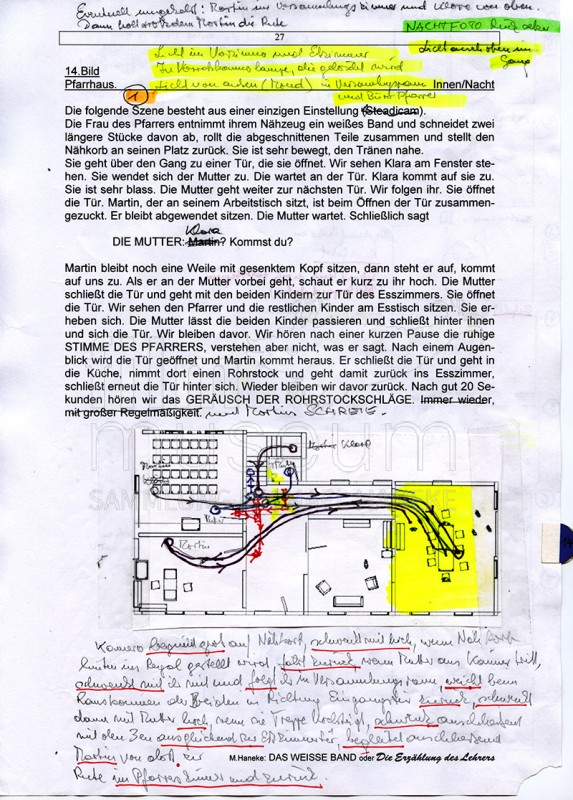 Eventuell umgekehrt: Martin im Versammlungszimmer und Klara von oben.
Dann holt trotzdem Martin die Rute
NACHTFOTO
27
Licht im Vorzimmer und Esszimmer
14.Bild
Pfarrhaus.
Licht von außen (Mond) in Versammlungsraum
Innen/Nacht
1
Die folgende Szene besteht aus einer einzigen Einstellung (Steadicam).
Die Frau des Pfarrers entnimmt ihrem Nähzeug ein weißes Band und schneidet zwei
längere Stücke davon ab, rollt die abgeschnittenen Teile zusammen und stellt den
Nähkorb an seinen Platz zurück. Sie ist sehr bewegt, den Tränen nahe.
Sie geht über den Gang zu einer Tür, die sie öffnet. Wir sehen Klara am Fenster ste-
hen. Sie wendet sich der Mutter zu. Die wartet an der Tür. Klara kommt auf sie zu.
Sie ist sehr blass. Die Mutter geht weiter zur nächsten Tür. Wir folgen ihr. Sie öffnet
die Tür. Martin, der an seinem Arbeitstisch sitzt, ist beim Öffnen der Tür zusammen-
gezuckt. Er bleibt abgewendet sitzen. Die Mutter wartet. Schließlich sagt
Klara
DIE MUTTER: Martin? Kommst du?
Martin bleibt noch eine Weile mit gesenktem Kopf sitzen, dann steht er auf, kommt
auf uns zu. Als er an der Mutter vorbei geht, schaut er kurz zu ihr hoch. Die Mutter
schließt die Tür und geht mit den beiden Kindern zur Tür des Esszimmers. Sie öffnet
die Tür. Wir sehen den Pfarrer und die restlichen Kinder am Esstisch sitzen. Sie er-
heben sich. Die Mutter lässt die beiden Kinder passieren und schließt hinter ihnen
und sich die Tür. Wir bleiben davor. Wir hören nach einer kurzen Pause die ruhige
STIMME DES PFARRERS, verstehen aber nicht, was er sagt. Nach einem Augen-
blick wird die Tür geöffnet und Martin kommt heraus. Er schließt die Tür und geht in
die Küche, nimmt dort einen Rohrstock und geht damit zurück ins Esszimmer,
schließt erneut die Tür hinter sich. Wieder bleiben wir davor zurück. Nach gut 20 Se-
kunden hören wir das GERÄUSCH DER ROHRSTOCKSCHLÄGE. Immer wieder,
mit großer Regelmäßigkeit. und Martins SCHREIE.
museum
SAMMLUNG
Martin
Kamera beginnt groß auf Nähkorb, schwenkt mit hoch, wenn Nähkorb
hinten ins Regal gestellt wird, fährt zurück wenn Mutter aus Kammer tritt,
schwenkt mit ihr mit und folgt ihr in Versammlungsraum, weicht beim
Rauskommen der Beiden in Richtung Eingangstür zurück, schwenkt
dann mit Mutter hoch, wenn sie Treppe hochsteigt, schwenkt anschliessend
mit den 3en ausgleichend zur Esszimmertür, begleitet anschliessend
Martin von dort
M.Haneke: DAS WEISSE BAND oder Die Erzählung des Lehrers
Rute ins Pfarrerszimmer und zurück.